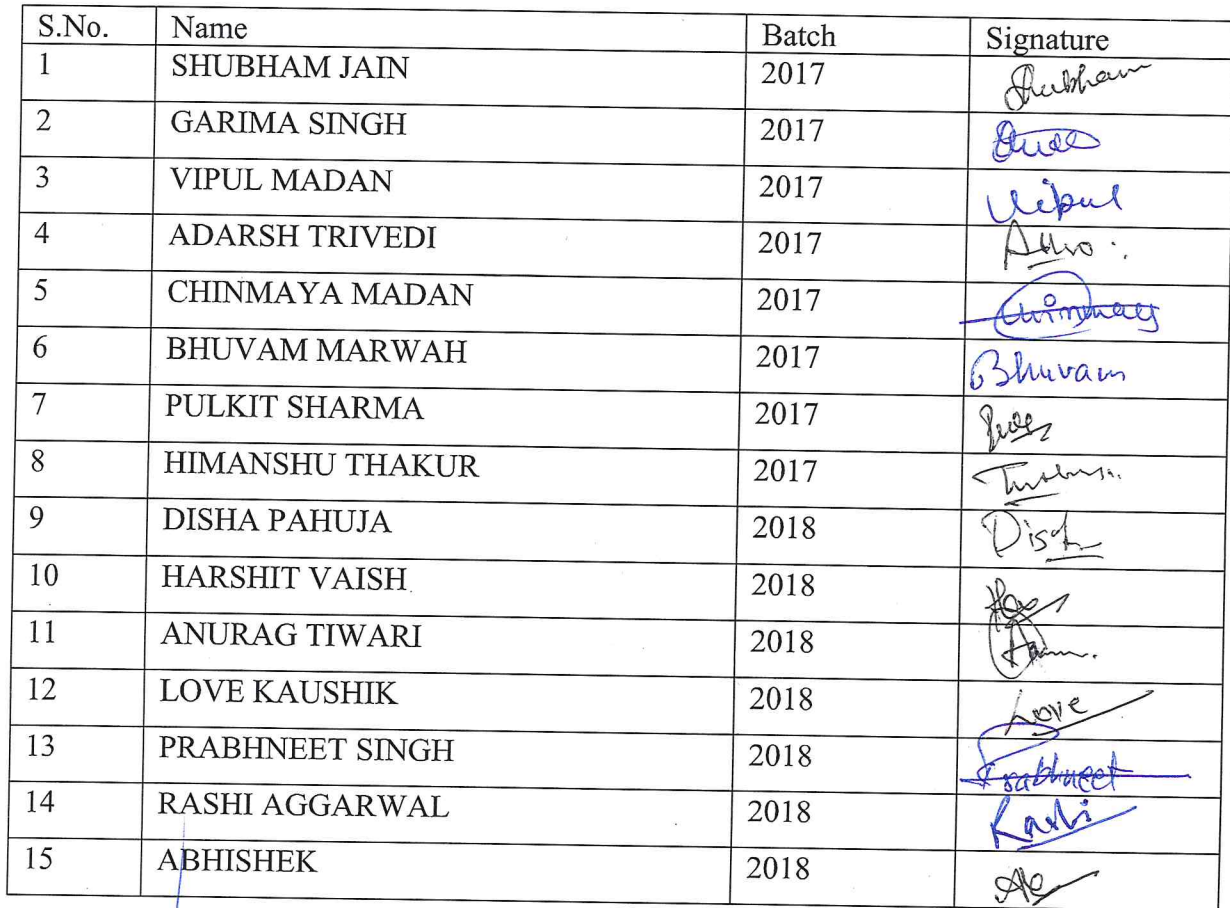 S.No. Name Batch Signature
1 SHUBHAM JAIN 2017 Shubham
2 GARIMA SINGH 2017
3 VIPUL MADAN 2017 Vipul
4 ADARSH TRIVEDI 2017
5 CHINMAYA MADAN 2017 Chinmay
6 BHUVAM MARWAH 2017 Bhuvam
7 PULKIT SHARMA 2017
8 HIMANSHU THAKUR 2017
9 DISHA PAHUJA 2018
10 HARSHIT VAISH 2018
11 ANURAG TIWARI 2018
12 LOVE KAUSHIK 2018 Love
13 PRABHNEET SINGH 2018 Prabhneet
14 RASHI AGGARWAL 2018 Rashi
15 ABHISHEK 2018